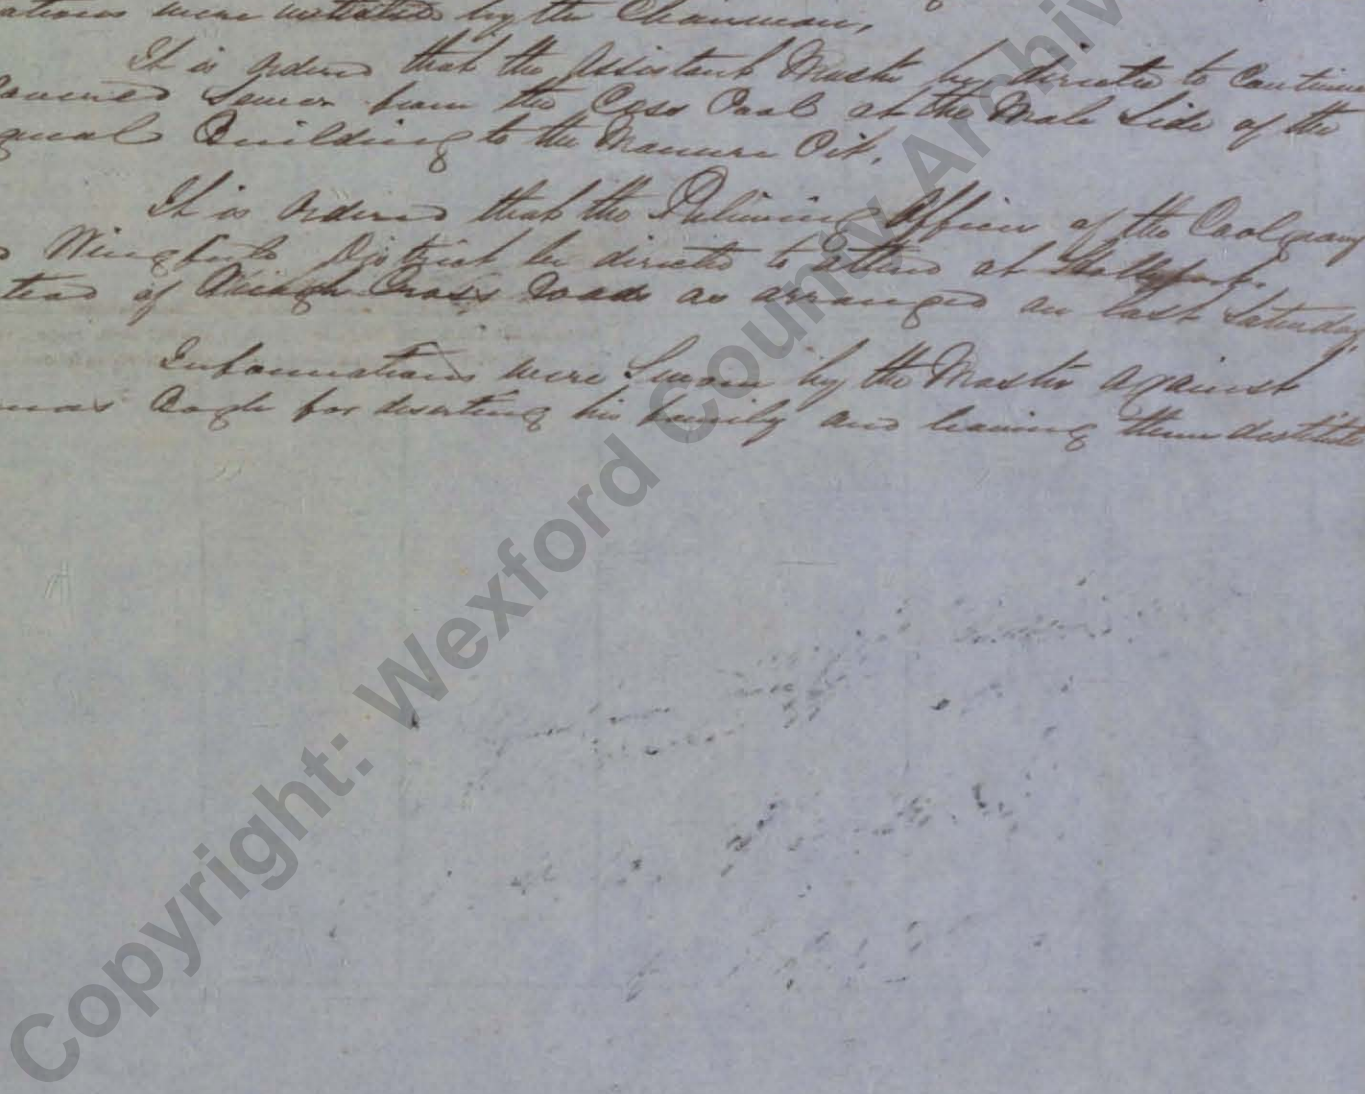 ations were initiated by the Chairman,
It is ordered that the Assistant Master be directed to Continue
Covered Sewer from the Cess Pool at the Male Side of the
Building to the Manure Pit.
It is ordered that the Relieving Officer of the Coolgreany
District be directed to attend at
tead of Cross Roads as arranged on last Saturday,
Informations were Sworn by the Master against
for deserting his family and leaving them destitute
Copyright: Wexford County Archiv